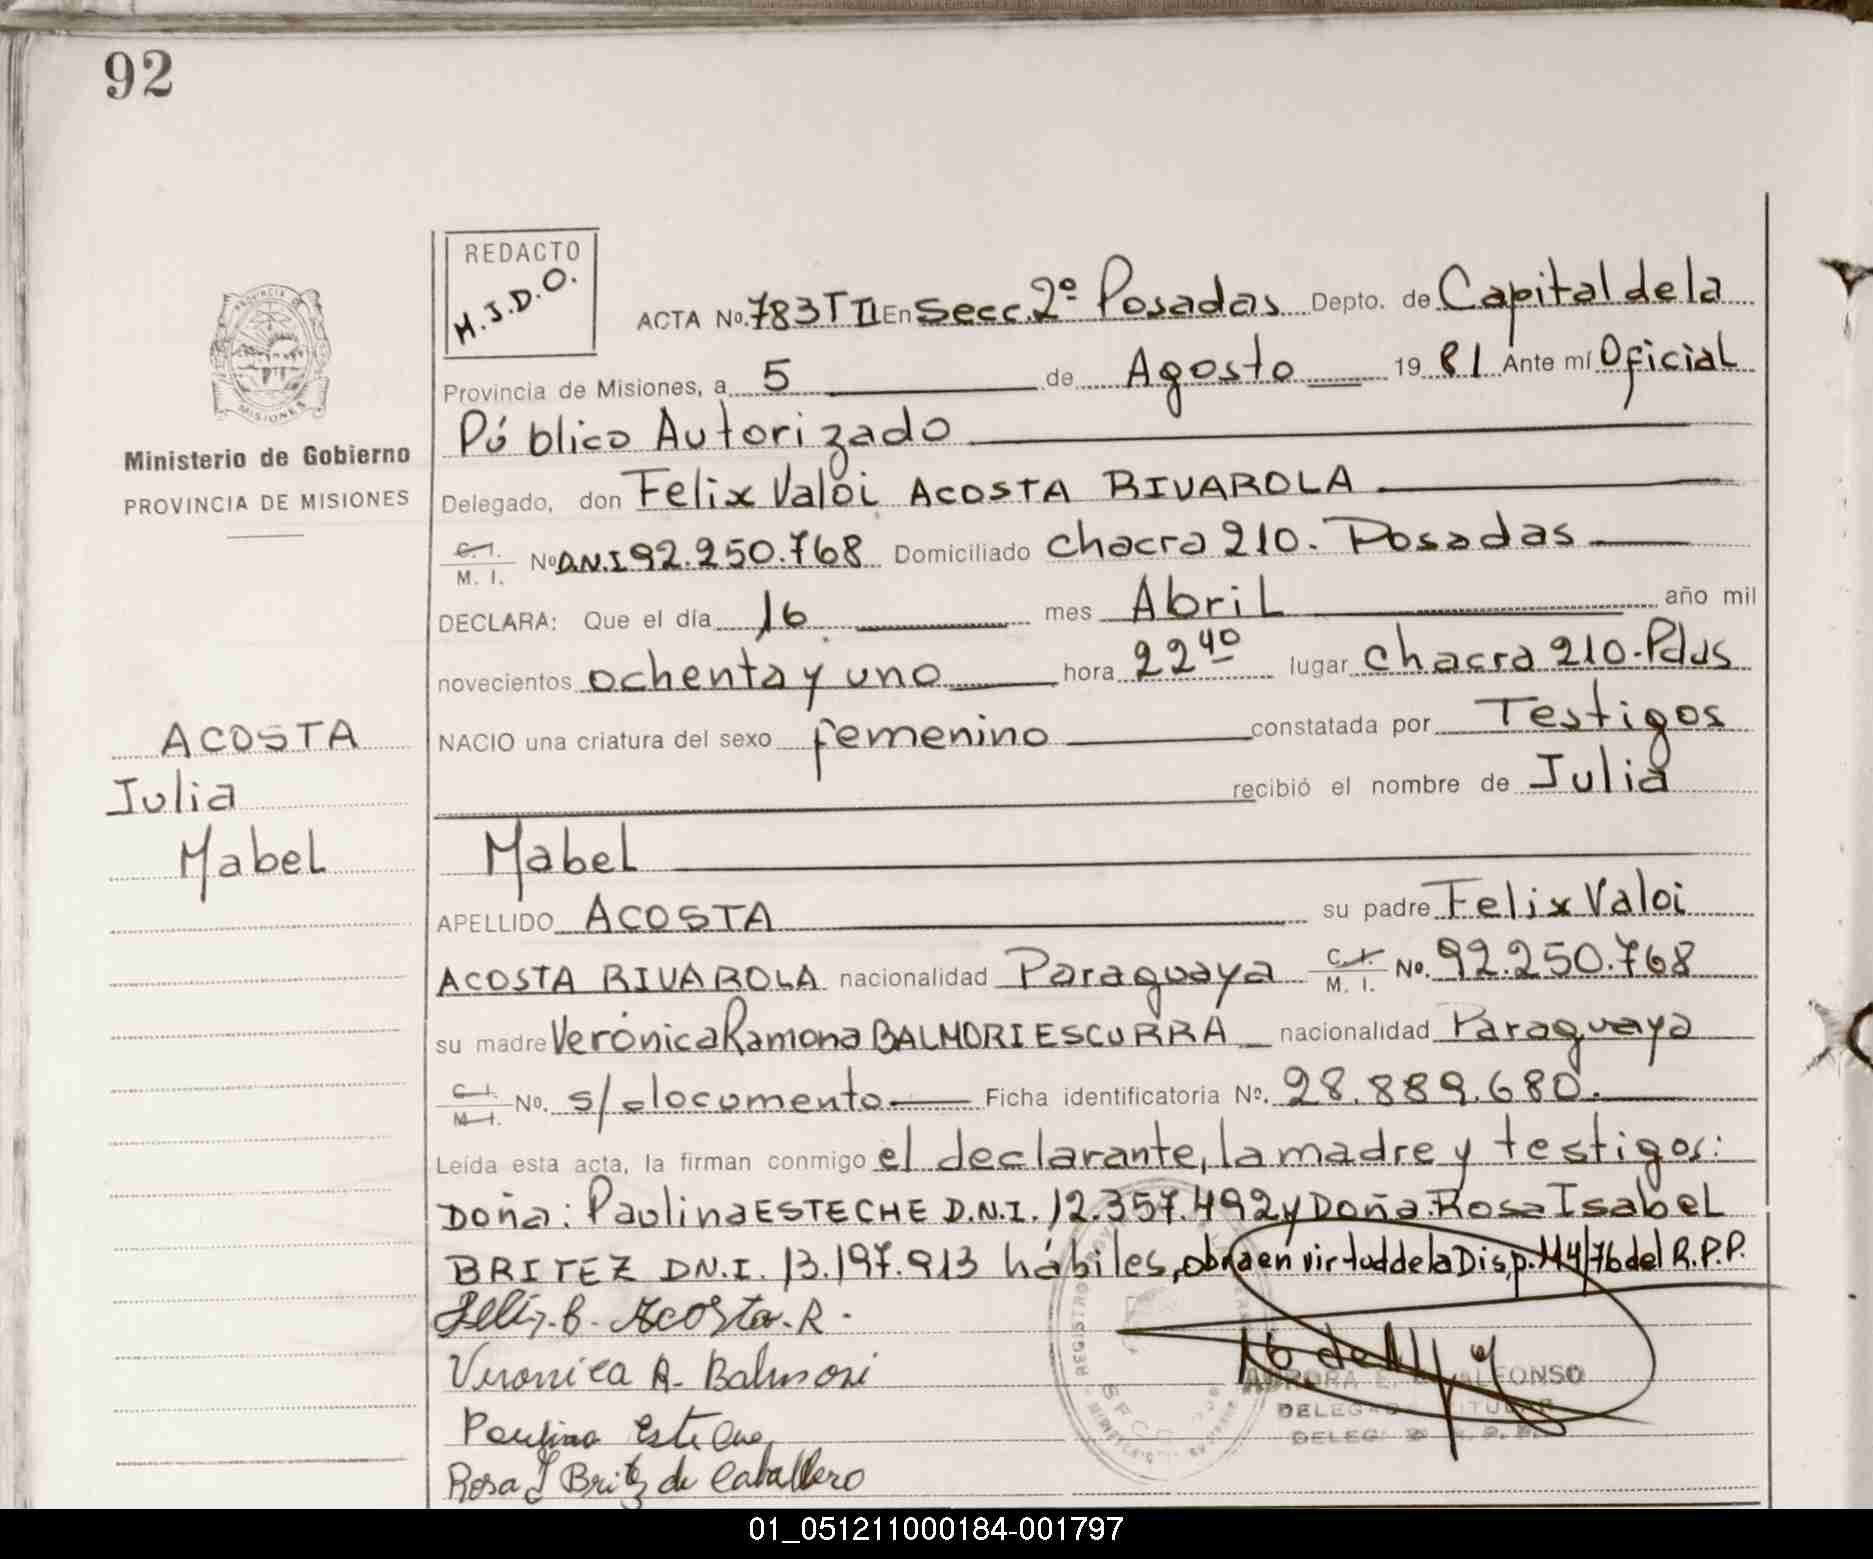 92
REDACTO
H.J.D.O.
PROVINCIA DE
MISIONES
Ministerio de Gobierno
PROVINCIA DE MISIONES
ACOSTA
Julia
Mabel
ACTA No. 783 T II En Secc. 2º Posadas Depto. de Capital de la
Provincia de Misiones, a 5 de Agosto 19 81 Ante mí Oficial
Público Autorizado
Delegado, don Felix Valoi ACOSTA RIVAROLA
C.I. M. I. Nº D.N.I 92.250.768 Domiciliado chacra 210. Posadas
DECLARA: Que el día 16 mes Abril año mil
novecientos ochenta y uno hora 22 40 lugar chacra 210-Pdas
NACIO una criatura del sexo femenino constatada por Testigos
recibió el nombre de Julia
Mabel
APELLIDO ACOSTA su padre Felix Valoi
ACOSTA RIVAROLA nacionalidad Paraguaya C.I. M. I. No. 92.250.768
su madre Verónica Ramona BALMORI ESCURRA nacionalidad Paraguaya
C.I. M.I. No. s/documento Ficha identificatoria Nº. 28.889.680.
Leída esta acta, la firman conmigo el declarante, la madre y testigos:
Doña: Paulina ESTECHE D.N.I. 12.357.492 y Doña Rosa Isabel
BRITEZ D.N.I. 13.197.913 hábiles, obra en virtud de la Disp. 114/76 del R.P.P.
Felix. B. Acosta. R.
Veronica R. Balmori
Paulina Esteche
Rosa I Britez de Caballero
ALFONSO
DELEGADA TITULAR
01_051211000184-001797